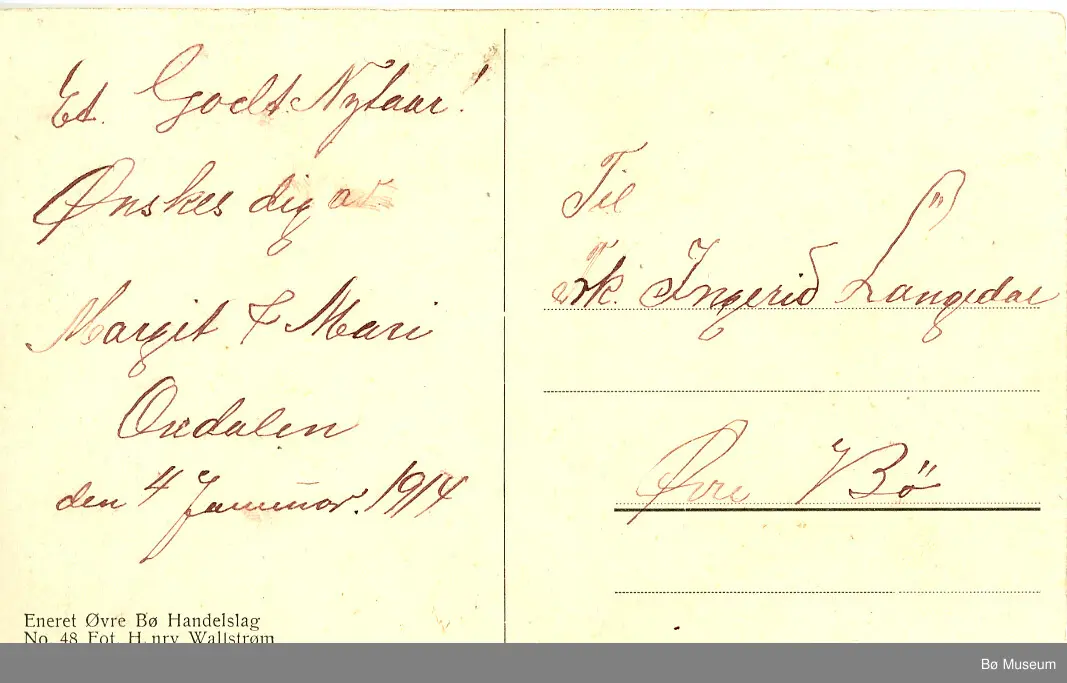 Et. Godt Nytaar!
Ønskes dig av
Margit & Mari
Oxdalen
den 4 Januar. 1914
Eneret Øvre Bø Handelslag
No. 48 Fot. H. nry Wallstrøm
Til
Frk. Ingerid Langedal
Øvre Bö
Bø Museum